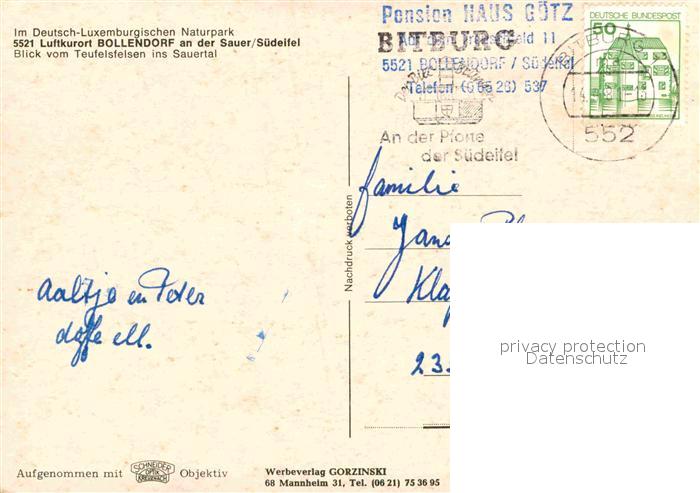 Im Deutsch-Luxemburgischen Naturpark
5521 Luftkurort BOLLENDORF an der Sauer/Südeifel
Blick vom Teufelsfelsen ins Sauertal
Pension HAUS GÖTZ
BITBURG
11
5521 BOLLENDORF / Südeifel
Telefon (06526) 537
An der Pforte
der Südeifel
DEUTSCHE BUNDESPOST
50
BITBURG
14
552
Familie
Nachdruck verboten
23
Aaltje en Peter
privacy protection
Datenschutz
Aufgenommen mit SCHNEIDER OPTIK KREUZNACH Objektiv
Werbeverlag GORZINSKI
68 Mannheim 31, Tel. (06 21) 75 36 95